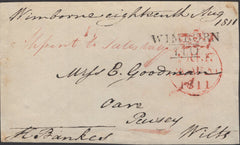 Wimborne eighteenth Aug
1811
WIMBORN
1811
Miss E. Goodman
Oare
Pewsey
Wilts
H Bankes